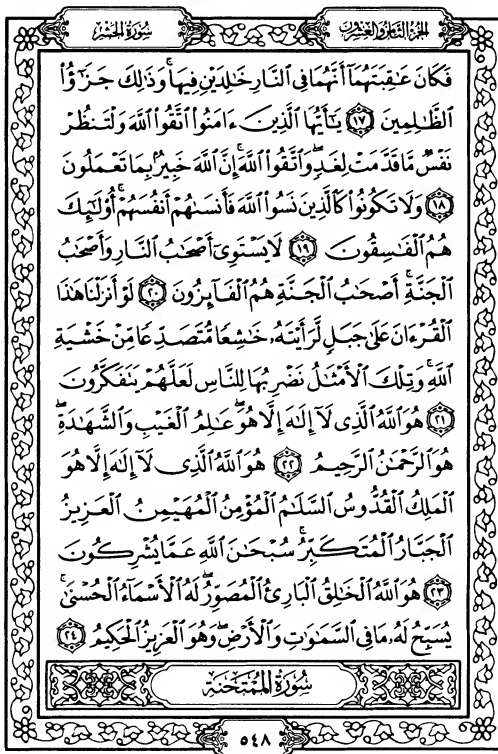 سُورَةُ الحَشْرِ الجُزْءُ الثَّامِنُ وَالعِشْرُونَ
فَكَانَ عَٰقِبَتَهُمَآ أَنَّهُمَا فِى ٱلنَّارِ خَٰلِدَيْنِ فِيهَا ۚ وَذَٰلِكَ جَزَٰٓؤُا۟
ٱلظَّٰلِمِينَ ١٧ يَٰٓأَيُّهَا ٱلَّذِينَ ءَامَنُوا۟ ٱتَّقُوا۟ ٱللَّهَ وَلْتَنظُرْ
نَفْسٌ مَّا قَدَّمَتْ لِغَدٍ ۖ وَٱتَّقُوا۟ ٱللَّهَ ۚ إِنَّ ٱللَّهَ خَبِيرٌۢ بِمَا تَعْمَلُونَ
١٨ وَلَا تَكُونُوا۟ كَٱلَّذِينَ نَسُوا۟ ٱللَّهَ فَأَنسَىٰهُمْ أَنفُسَهُمْ ۚ أُو۟لَٰٓئِكَ
هُمُ ٱلْفَٰسِقُونَ ١٩ لَا يَسْتَوِىٓ أَصْحَٰبُ ٱلنَّارِ وَأَصْحَٰبُ
ٱلْجَنَّةِ ۚ أَصْحَٰبُ ٱلْجَنَّةِ هُمُ ٱلْفَآئِزُونَ ٢٠ لَوْ أَنزَلْنَا هَٰذَا
ٱلْقُرْءَانَ عَلَىٰ جَبَلٍ لَّرَأَيْتَهُۥ خَٰشِعًا مُّتَصَدِّعًا مِّنْ خَشْيَةِ
ٱللَّهِ ۚ وَتِلْكَ ٱلْأَمْثَٰلُ نَضْرِبُهَا لِلنَّاسِ لَعَلَّهُمْ يَتَفَكَّرُونَ
٢١ هُوَ ٱللَّهُ ٱلَّذِى لَآ إِلَٰهَ إِلَّا هُوَ ۖ عَٰلِمُ ٱلْغَيْبِ وَٱلشَّهَٰدَةِ ۖ
هُوَ ٱلرَّحْمَٰنُ ٱلرَّحِيمُ ٢٢ هُوَ ٱللَّهُ ٱلَّذِى لَآ إِلَٰهَ إِلَّا هُوَ
ٱلْمَلِكُ ٱلْقُدُّوسُ ٱلسَّلَٰمُ ٱلْمُؤْمِنُ ٱلْمُهَيْمِنُ ٱلْعَزِيزُ
ٱلْجَبَّارُ ٱلْمُتَكَبِّرُ ۚ سُبْحَٰنَ ٱللَّهِ عَمَّا يُشْرِكُونَ
٢٣ هُوَ ٱللَّهُ ٱلْخَٰلِقُ ٱلْبَارِئُ ٱلْمُصَوِّرُ ۖ لَهُ ٱلْأَسْمَآءُ ٱلْحُسْنَىٰ ۚ
يُسَبِّحُ لَهُۥ مَا فِى ٱلسَّمَٰوَٰتِ وَٱلْأَرْضِ ۖ وَهُوَ ٱلْعَزِيزُ ٱلْحَكِيمُ ٢٤
سُورَةُ المُمْتَحنَةِ
٥٤٨